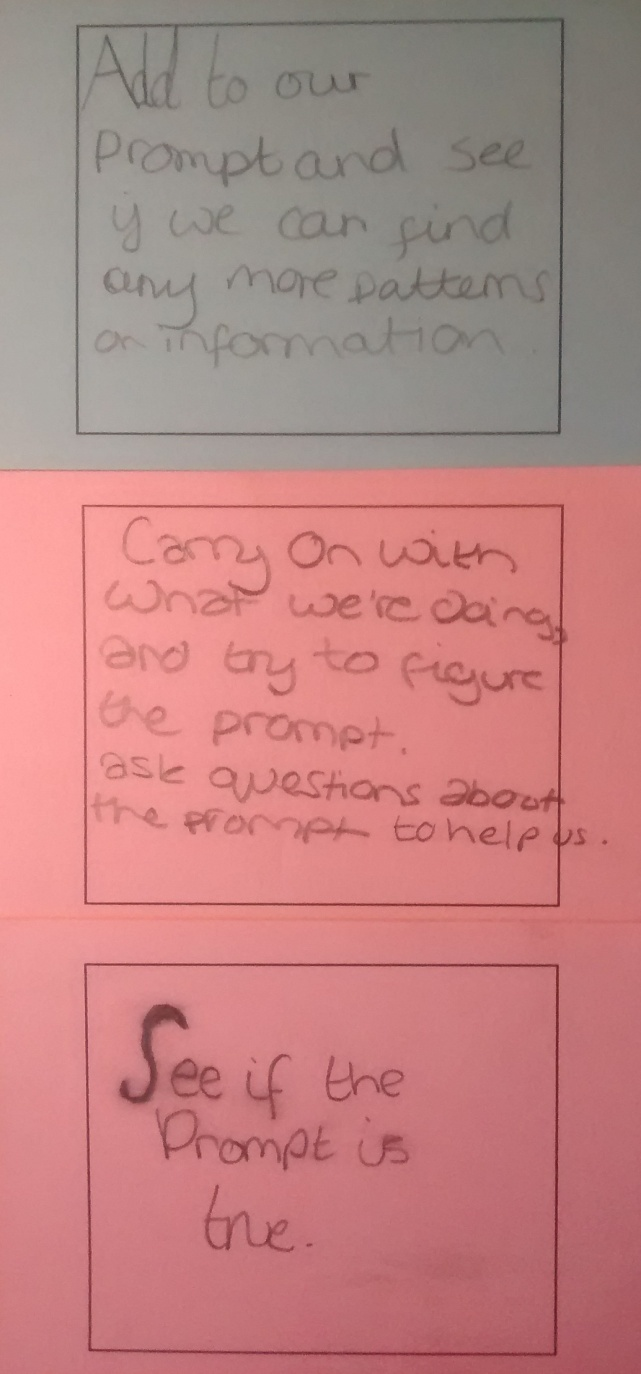 Add to our
Prompt and see
if we can find
any more patterns
or information.
Carry On with
what we're doing,
and try to figure
the prompt.
ask questions about
the prompt to help us.
See if the
Prompt is
true.